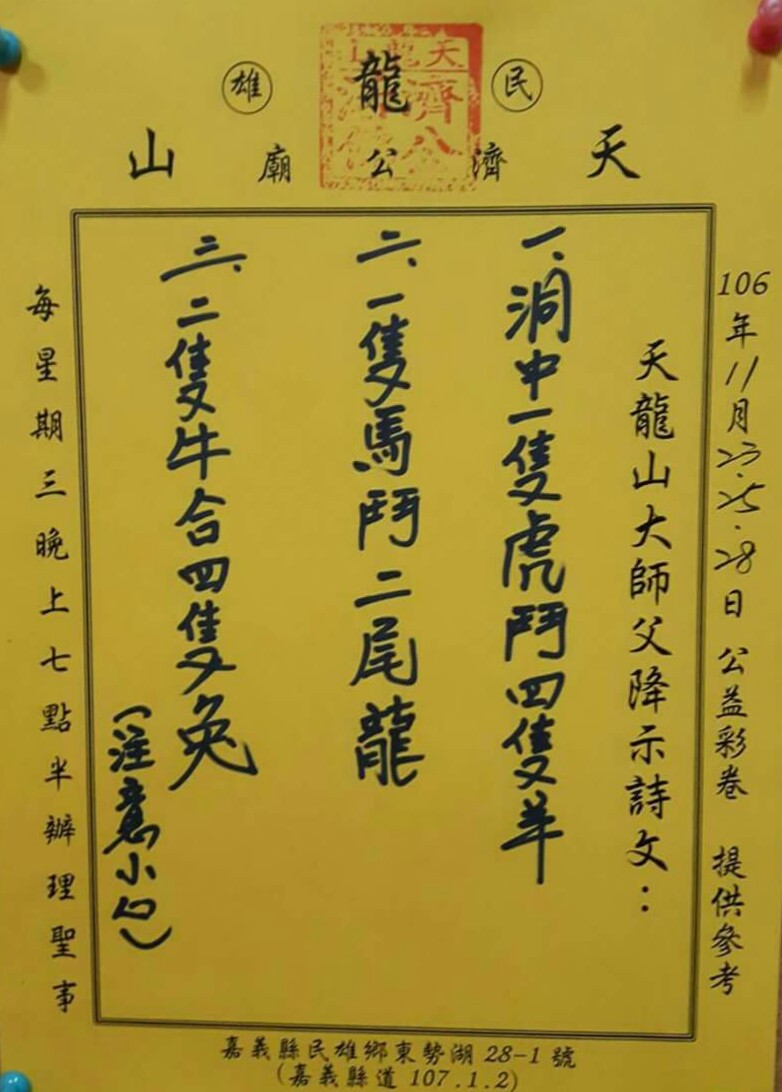 民 雄
天 龍 山
濟 公 廟
106年11月23.25.28日 公益彩卷 提供參考
天龍山大師父降示詩文：
一、洞中一隻虎鬥四隻羊
二、一隻馬鬥二尾龍
三、二隻牛合四隻兔
（注意小
每星期三晚上七點半辦理聖事
嘉義縣民雄鄉東勢湖28-1號
(嘉義縣道107.1.2)